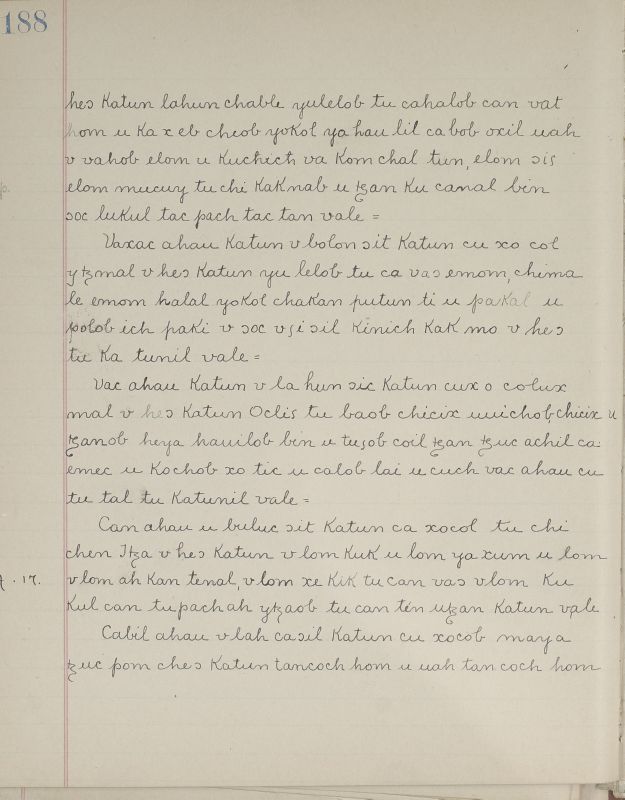 188
hes Katun lahun chable yulelob tu cahalob can vat
hom u Ka x eb cheob yokol ya hau lil ca bob oxil uah
v vahob elom u Kuchich va Kom chal tun, elom ɔis
elom mucuy tu chi KaKnab u tzan Ku canal bin
ɔoc luKul tac pach tac tan vale =
Vaxac ahau Katun v bolon ɔit Katun cu xo col
y tzmal v hes Katun yu lelob tu ca vas emom, chima
le emom halal yoKol chaKan putun ti u paKal u
polob ich paKi v ɔoc v ɔil Kinich KaK mo v hes
tu Ka tunil vale =
Vac ahau Katun v la hun ɔic Katun cux o c olux
mal v hes Katun Oclis tu baob chicix uuichob, chicix u
tzanob heya hauilob bin u tuɔob coil tzan tzuc achil ca
emec u Kochob xo tic u calob lai u cuch vac ahau cu
tu tal tu Katunil vale =
Can ahau u buluc ɔit Katun ca xocol tu chi
chen Itza v hes Katun v lom KuK u lom ya xum u lom
17.
v lom ah Kan tenal, v lom xe KiK tu can vas v lom Ku
Kul can tu pach ah ytzaob tu can tén utzan Katun vale
Cabil ahau v lah ca ɔil Katun cu xocob maya
tzuc pom ches Katun tancoch hom u uah tan coch hom